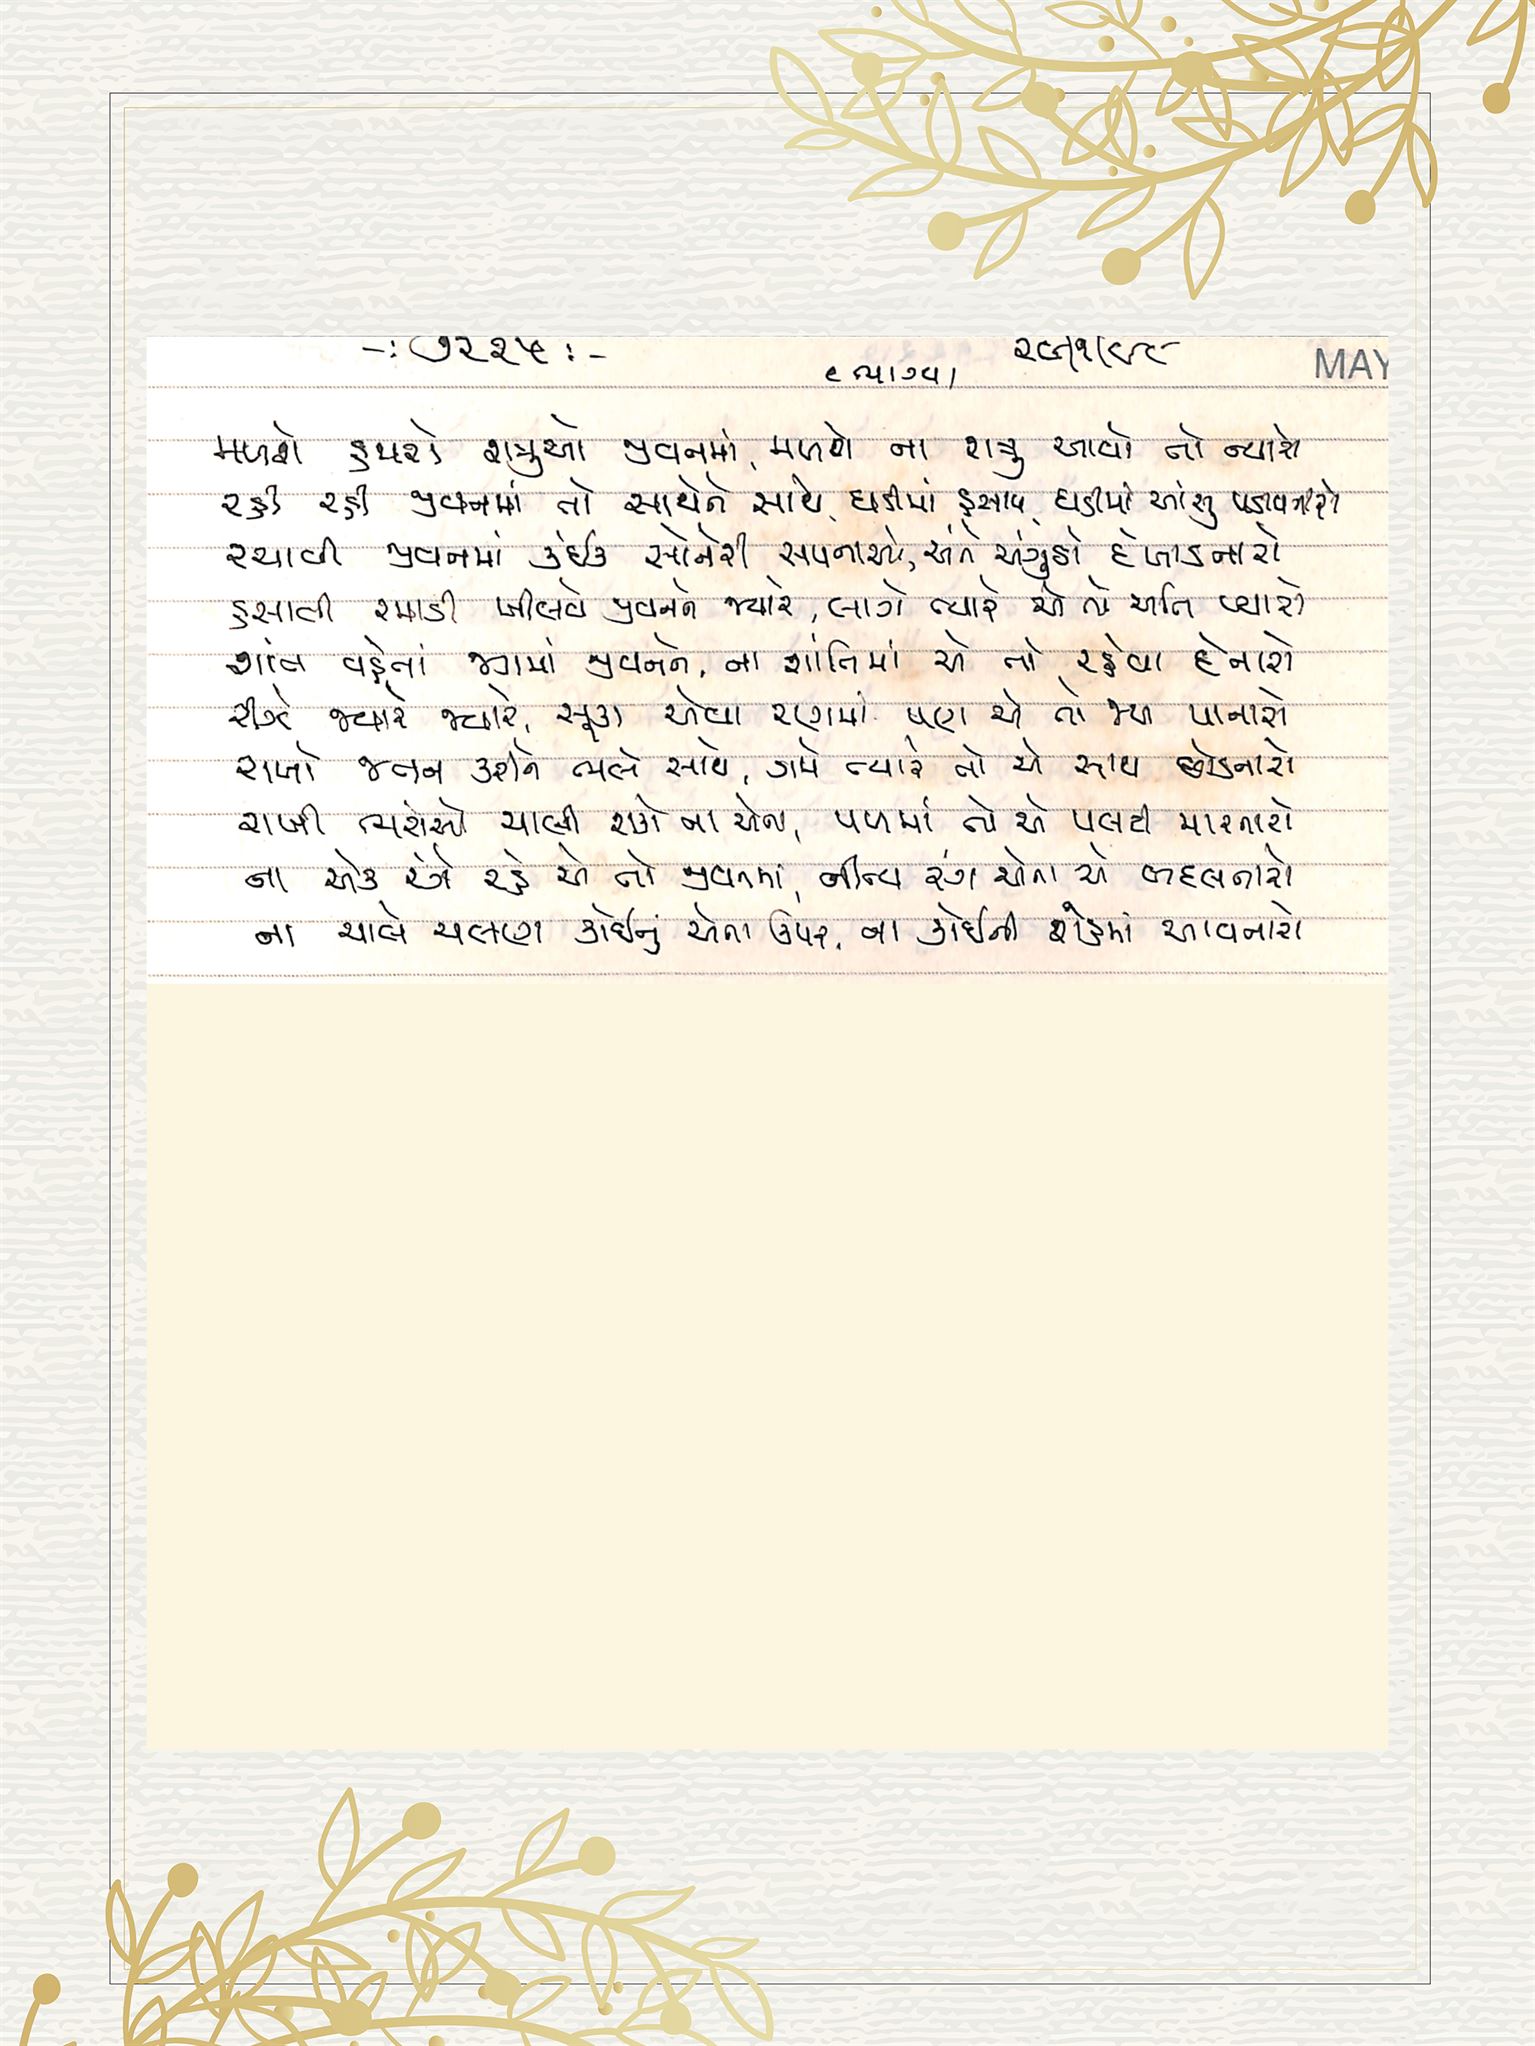 -: ૭૨૨૫ :- ૨૯/૧/૯૮ MAY
(ભાગ્ય)
મળશે હુપશે શત્રુઓ જીવનમાં, મળશે ના શત્રુ આવો તો ન્યારો
રહી રહી જીવનમાં તો સાથેને સાથે, ઘડીમાં હસાવે, ઘડીમાં આંસુ પડાવનારો
રચાવી જીવનમાં કંઈક સોનેરી સપનાઓ, અંતે અંગુઠો દેખાડનારો
હસાવી રમાડી ખીલવે જીવનને જ્યારે, લાગે ત્યારે એ તો અતિ પ્યારો
શાંત વહેતાં જગમાં જીવનને, ના શાંતિમાં એ તો રહેવા દેનારો
રીઝે જ્યારે જ્યારે, સૂકા એવા રણમાં પણ એ તો જળ પાનારો
રાખો જતન કરીને ભલે સાથે, ગમે ત્યારે તો એ સાથ છોડનારો
રાખી ભરોસો ચાલી શકે ના એના, પળમાં તો એ પલટી મારનારો
ના એક રંગે રહે એ તો જીવનમાં, નીત્ય રંગ એના એ બદલનારો
ના ચાલે ચલણ કોઈનું એના ઉપર, ના કોઈની શેહમાં આવનારો